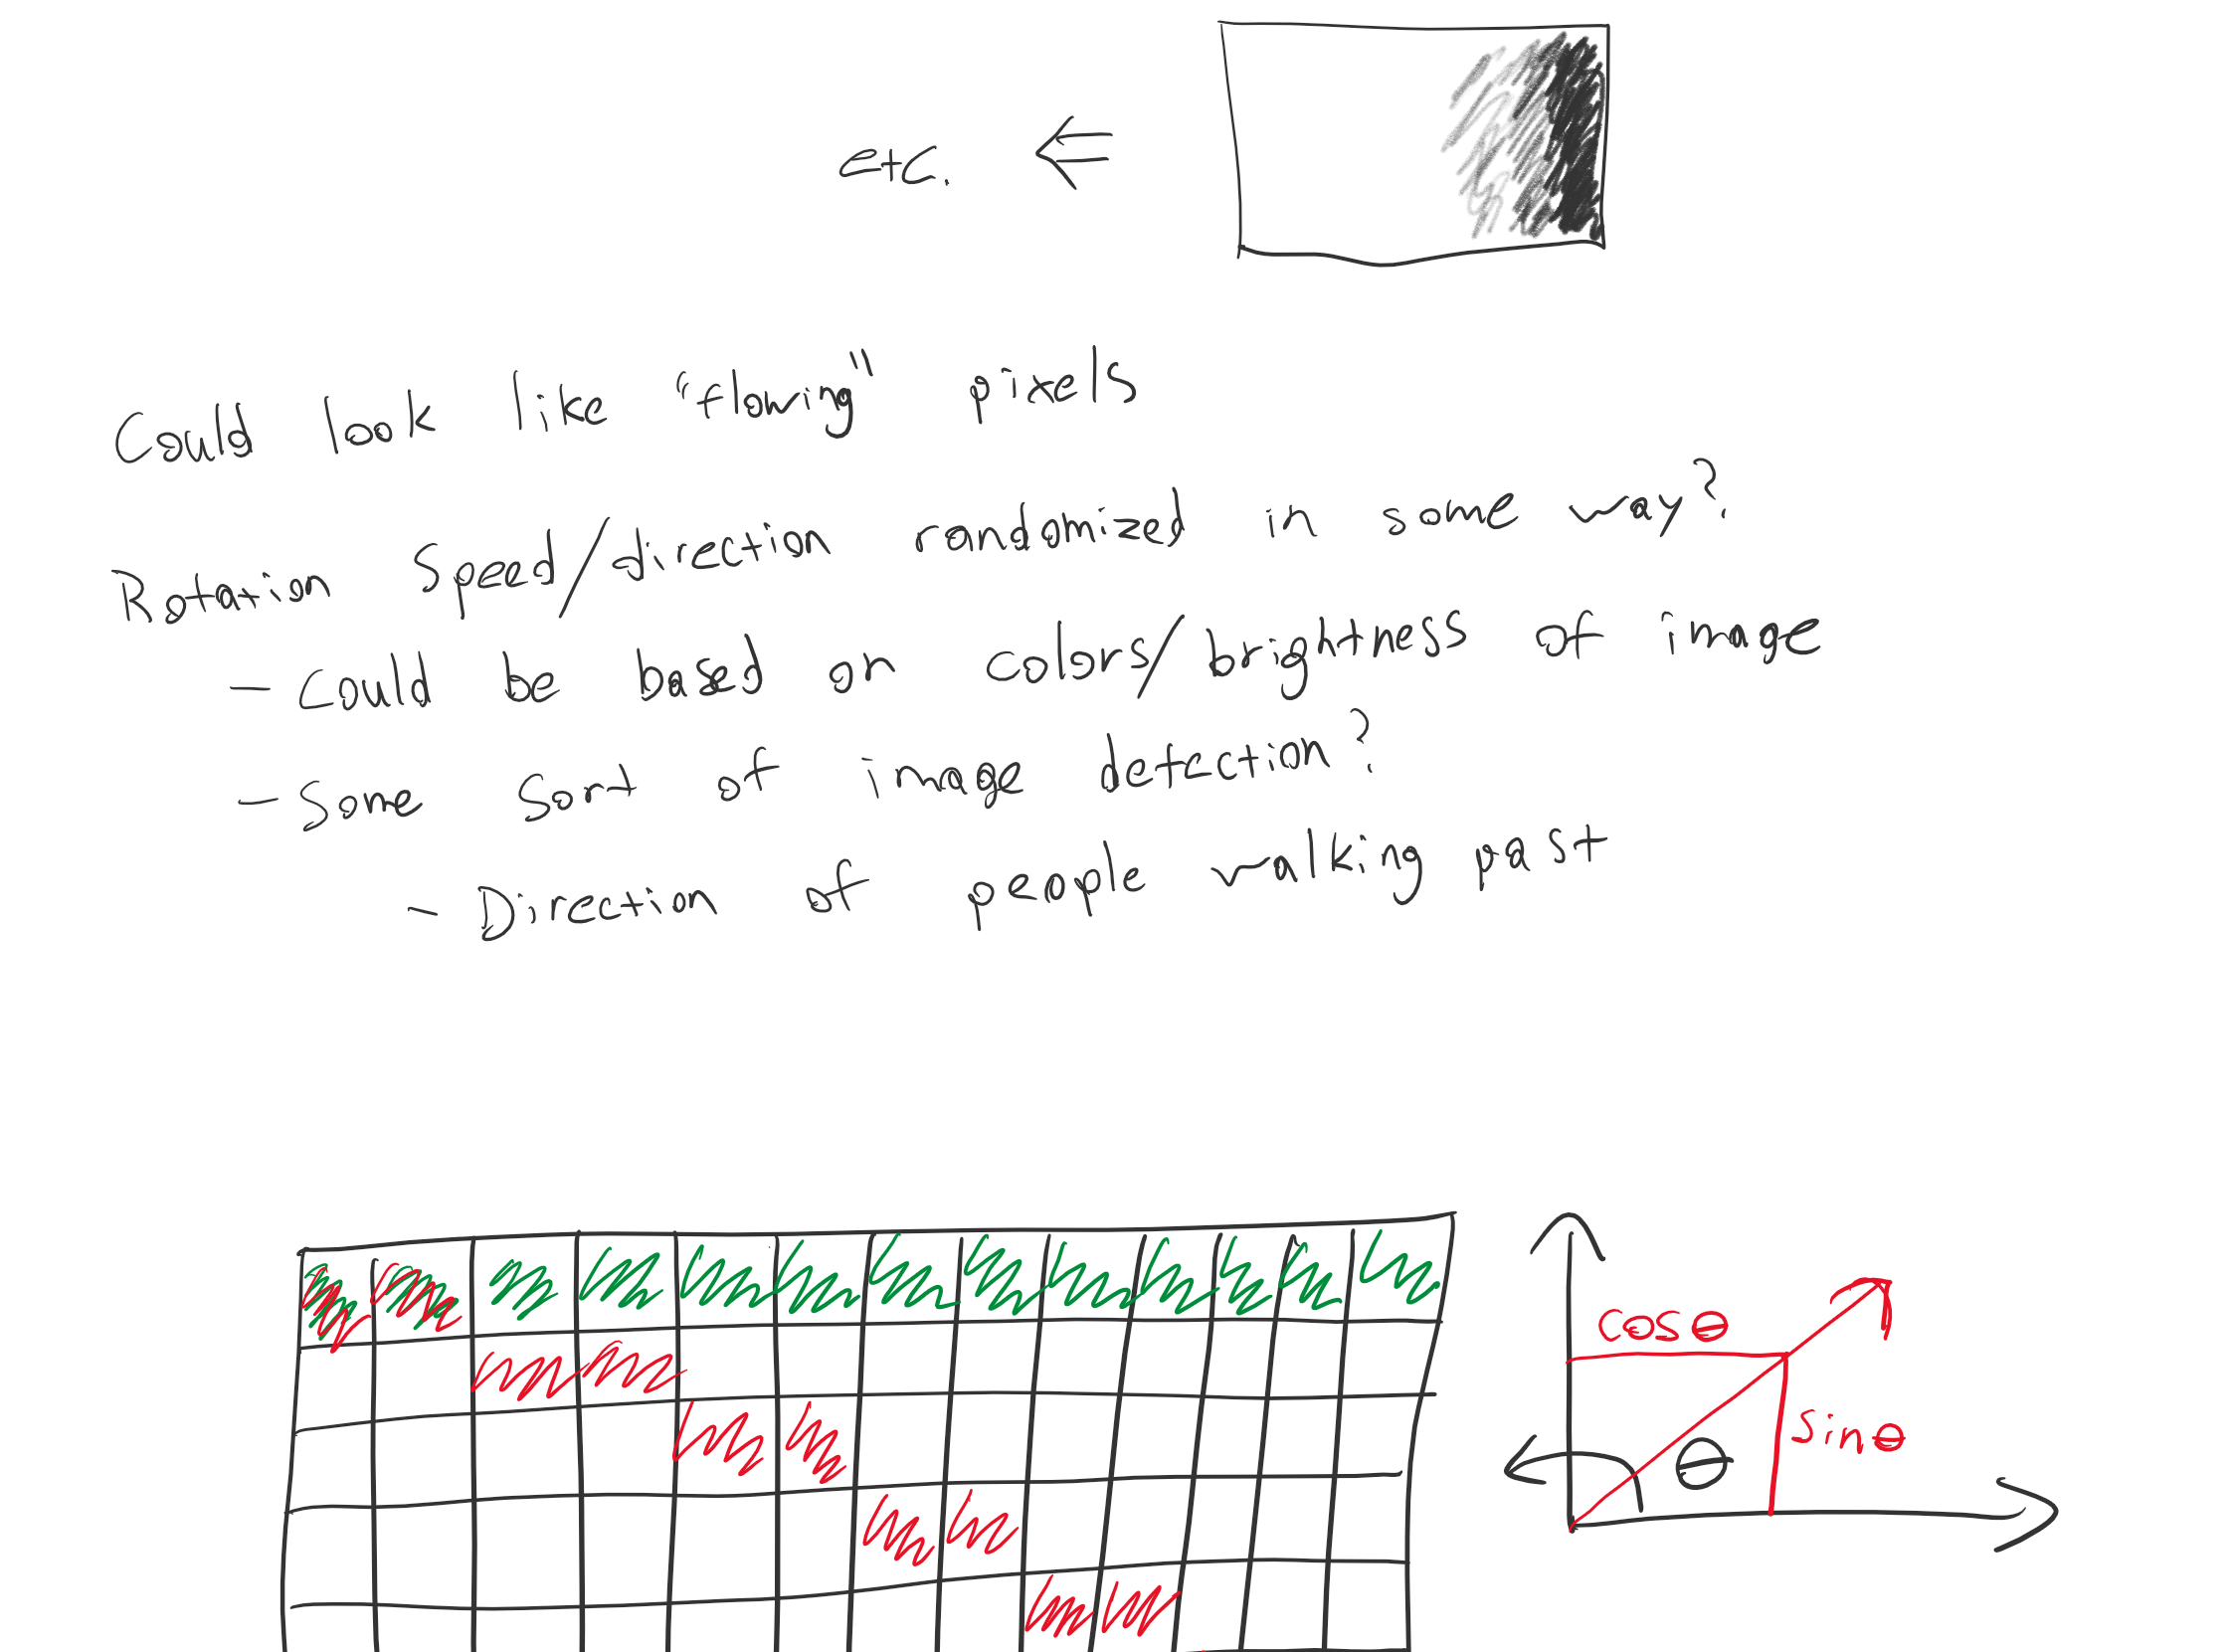 etc.
Could look like "flowing" pixels
Rotation speed/direction randomized in some way?
- Could be based on colors/brightness of image
- Some sort of image detection?
- Direction of people walking past
cos θ
sin θ
θ